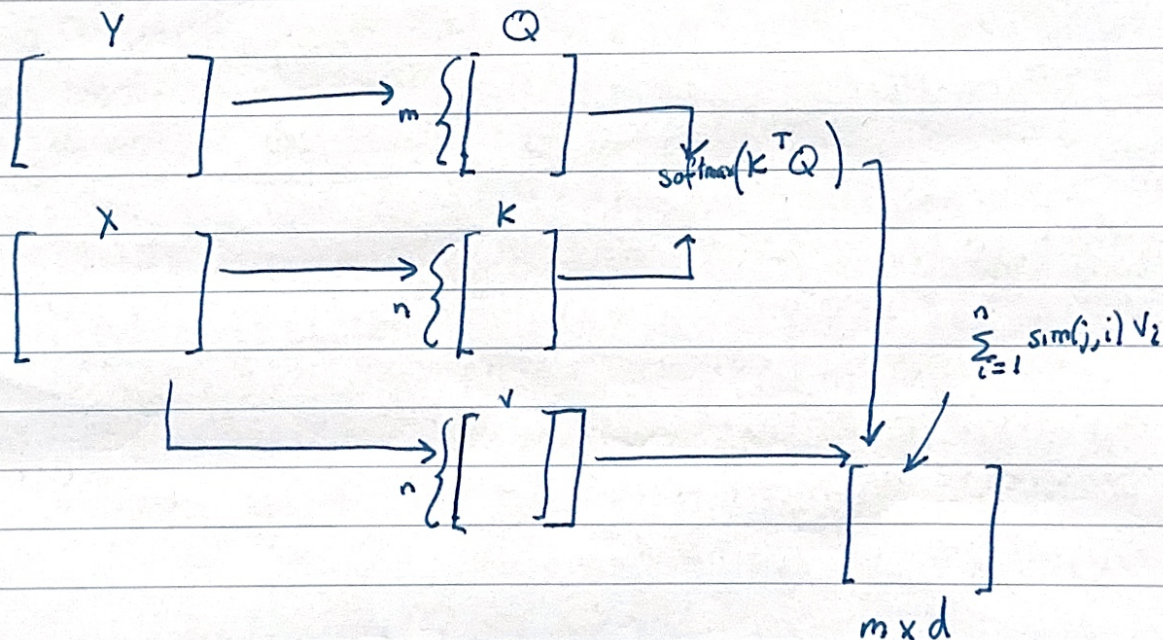 Y
Q
m
softmax(K^T Q)
X
K
n
n
∑
i=1
sim(j,i) V_i
V
n
m x d